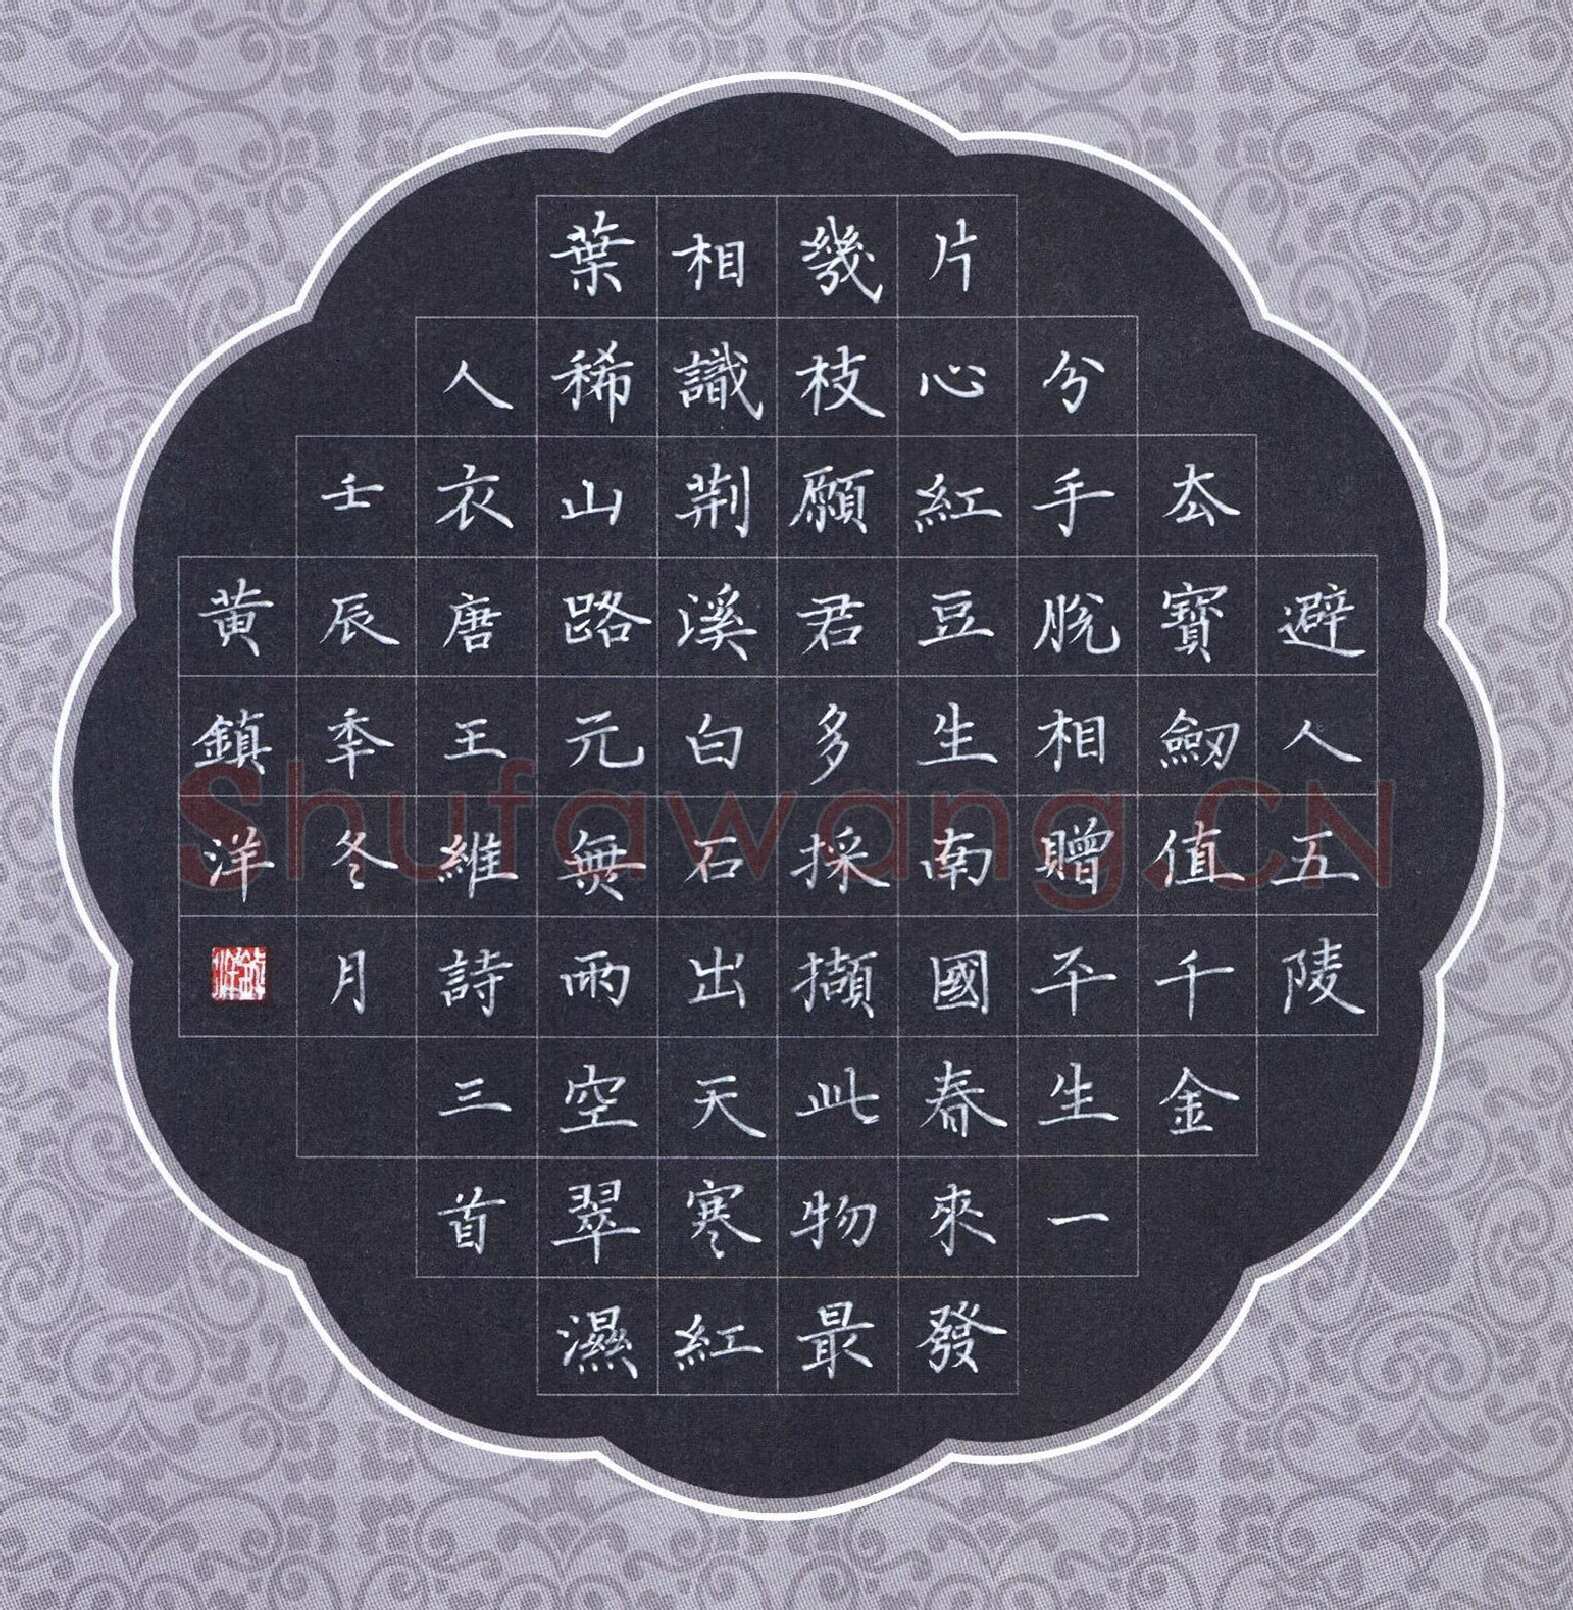 避人五陵
厺寶劔值千金
分手脫相贈平生一
片心紅豆生南國春來發
幾枝願君多採擷此物最
相識荆溪白石出天寒紅
葉稀山路元無雨空翠濕
人衣唐王維詩三首
壬辰季冬月
黄鎮洋
Shufawang.CN